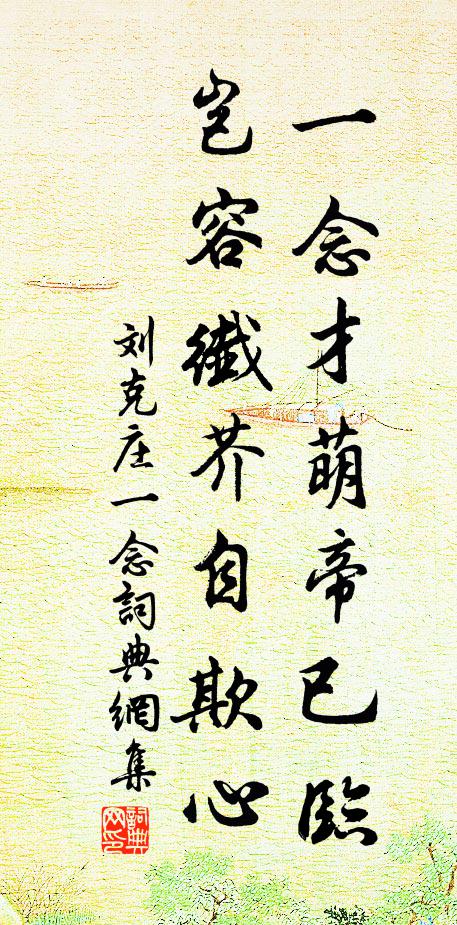 一念才萌帝已臨
岂容纖芥自欺心
刘克庄一念詞典網集
詞典网印